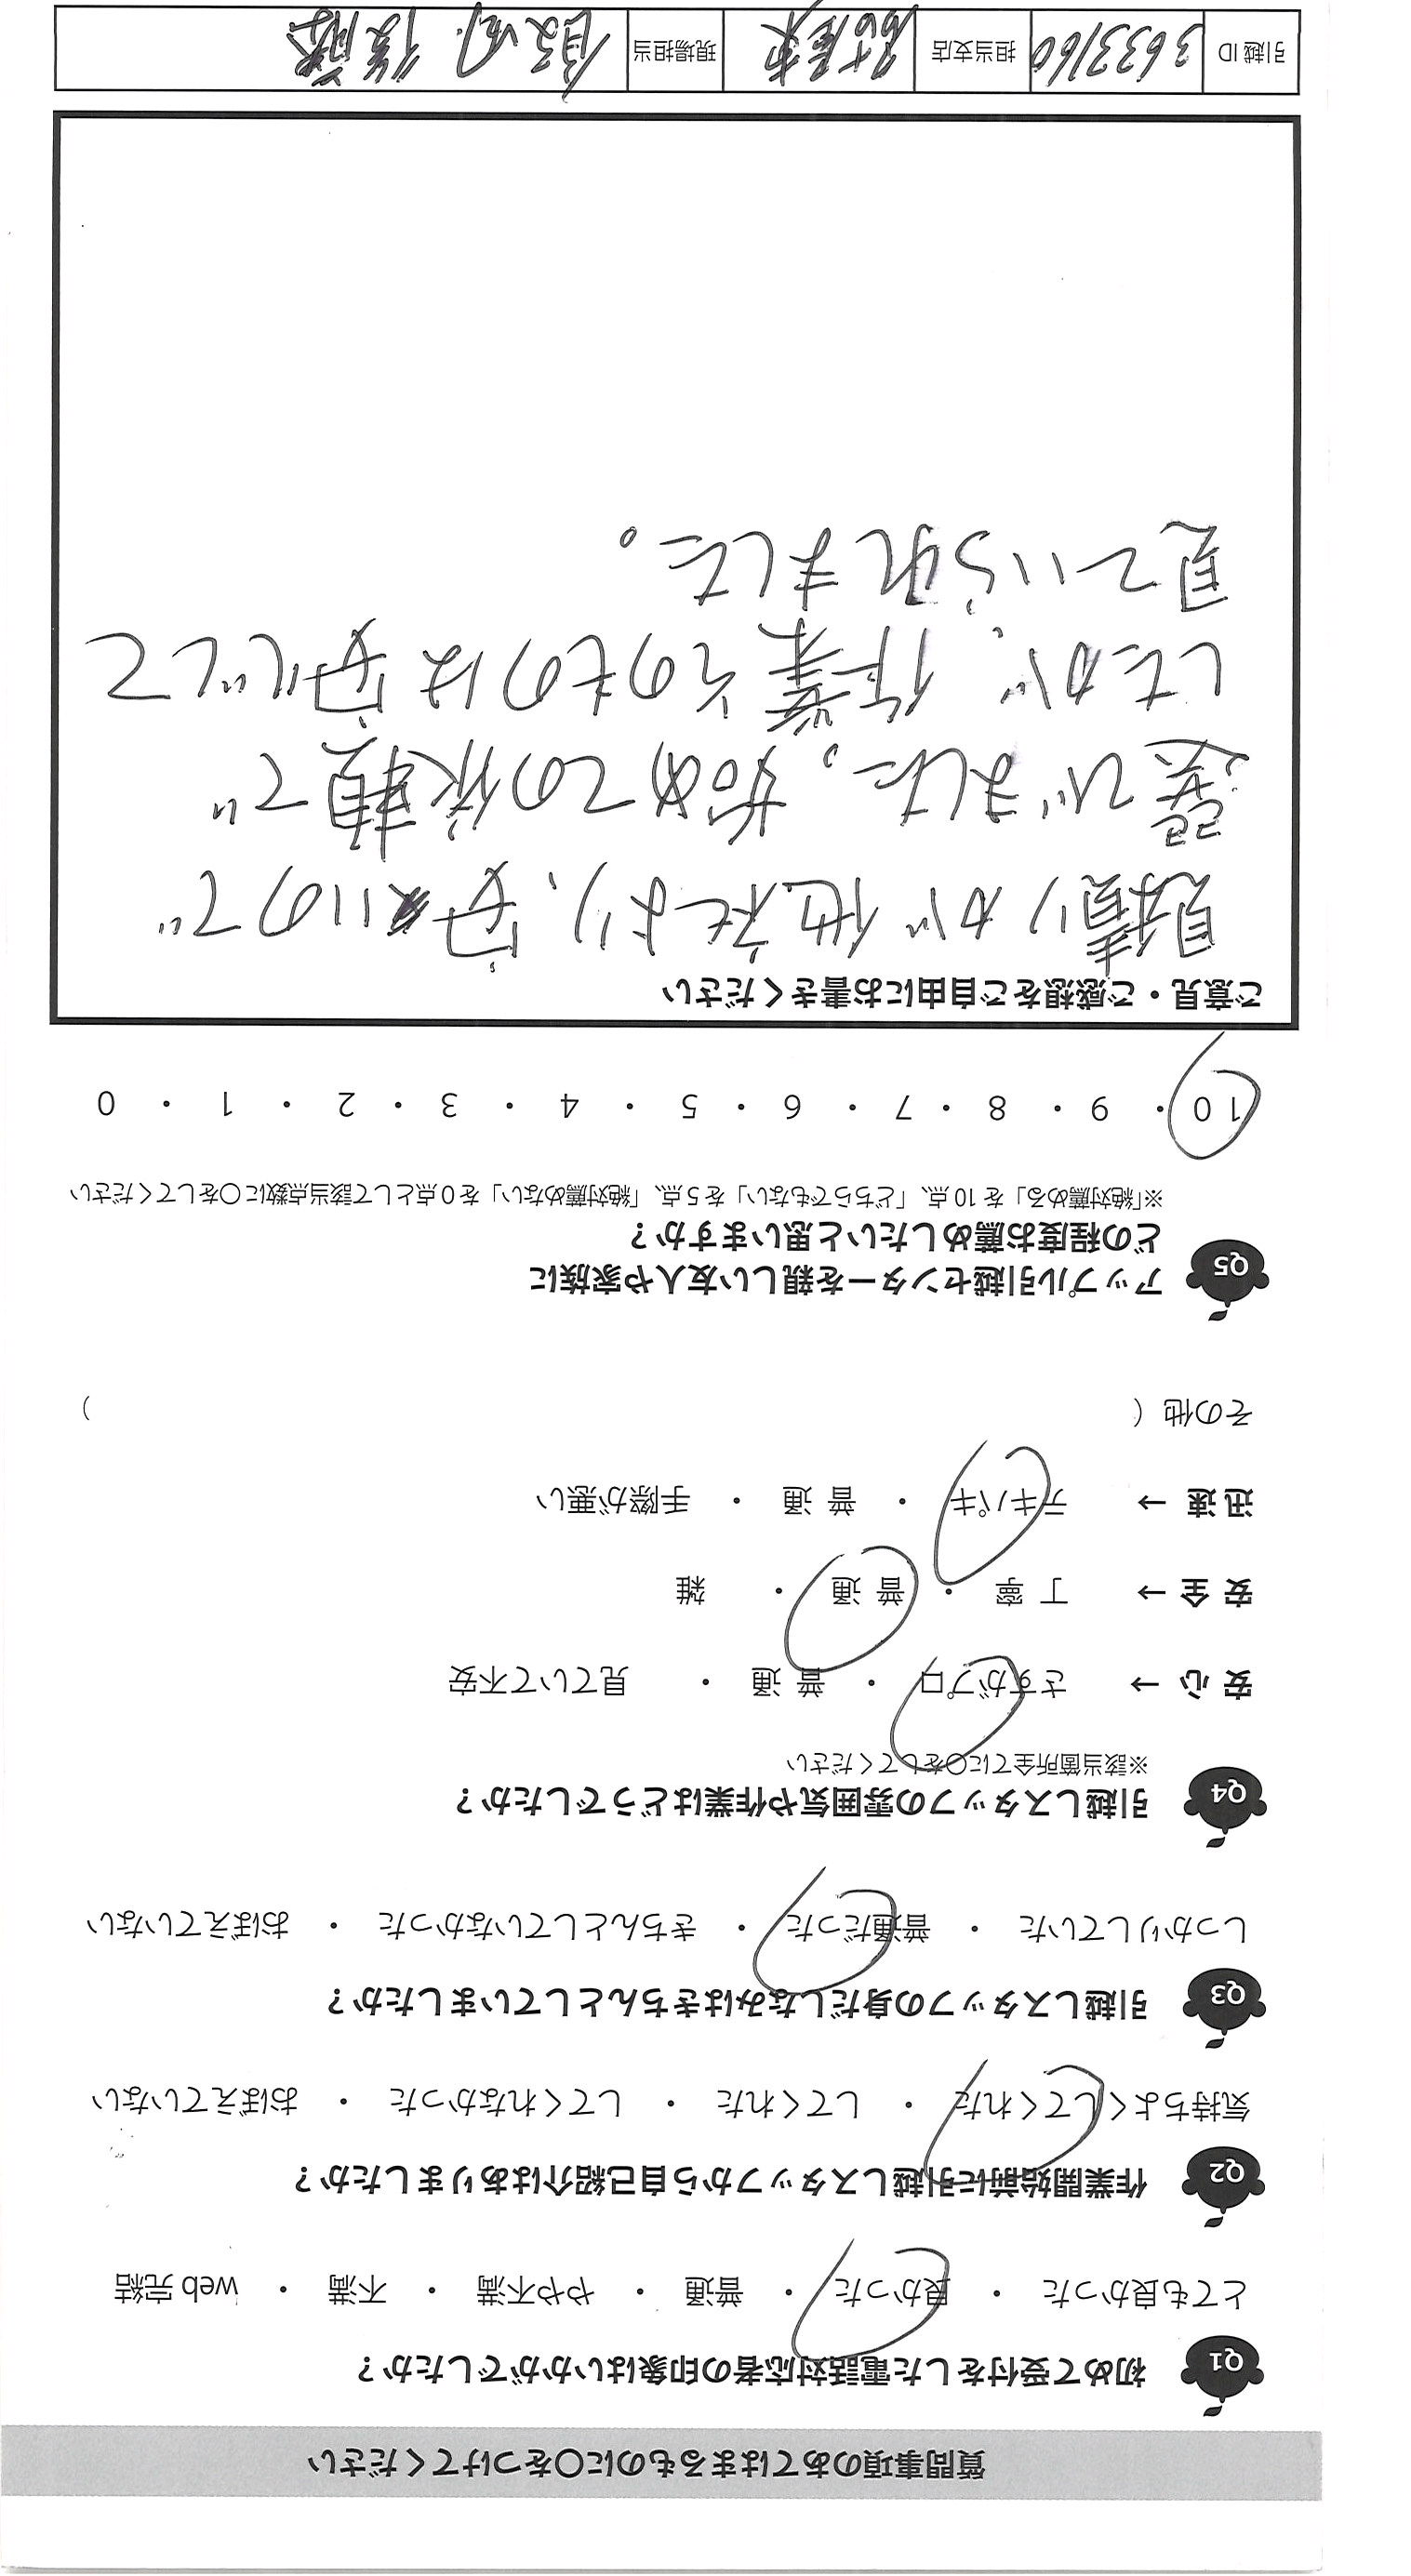 質問事項のあてはまるものに○をつけてください
Q1 初めて受付をした電話対応者の印象はいかがでしたか？
とても良かった ・ 良かった ・ 普通 ・ やや不満 ・ 不満 ・ web 完結
Q2 作業開始前に引越しスタッフから自己紹介はありましたか？
気持ちよくしてくれた ・ してくれた ・ してくれなかった ・ おぼえていない
Q3 引越しスタッフの身だしなみはきちんとしていましたか？
しっかりしていた ・ 普通だった ・ きちんとしていなかった ・ おぼえていない
Q4 引越しスタッフの雰囲気や作業はどうでしたか？
※該当箇所全てに○をしてください
安 心 → さすがプロ ・ 普 通 ・ 見ていて不安
安 全 → 丁 寧 ・ 普 通 ・ 雑
迅 速 → テキパキ ・ 普 通 ・ 手際が悪い
その他（ ）
Q5 アップル引越センターを親しい友人や家族に
どの程度お薦めしたいと思いますか？
※「絶対薦める」を 10 点、「どちらでもない」を 5 点、「絶対薦めない」を 0 点として該当点数に○をしてください
10 ・ 9 ・ 8 ・ 7 ・ 6 ・ 5 ・ 4 ・ 3 ・ 2 ・ 1 ・ 0
ご意見・ご感想をご自由にお書きください
見積りが他社より、安いので
選びました。始めての依頼で
したが、作業そのものは安心して
見ていられました。
引越 ID 3633160 担当支店 現場担当